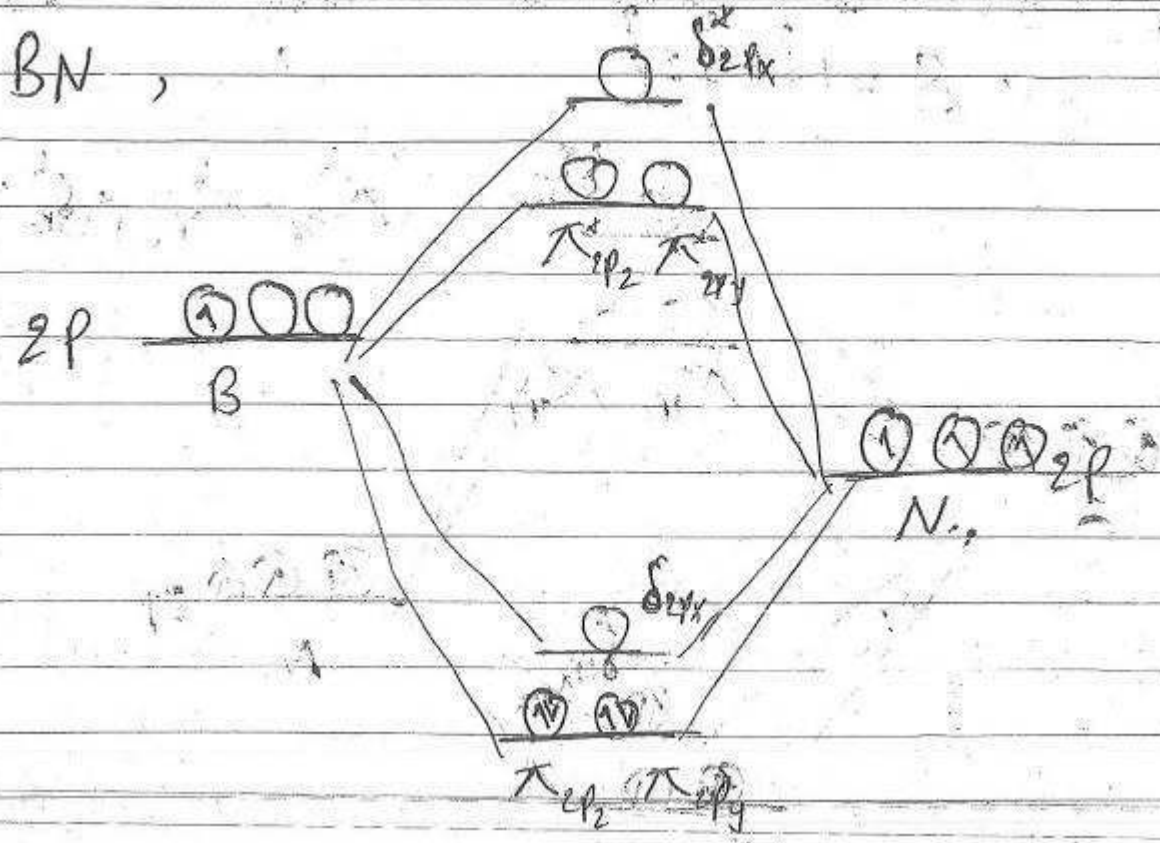 BN ,
δ*2Px
π*2Pz π*2Py
2P
B
2P
N
δ2Px
π2Pz π2Py